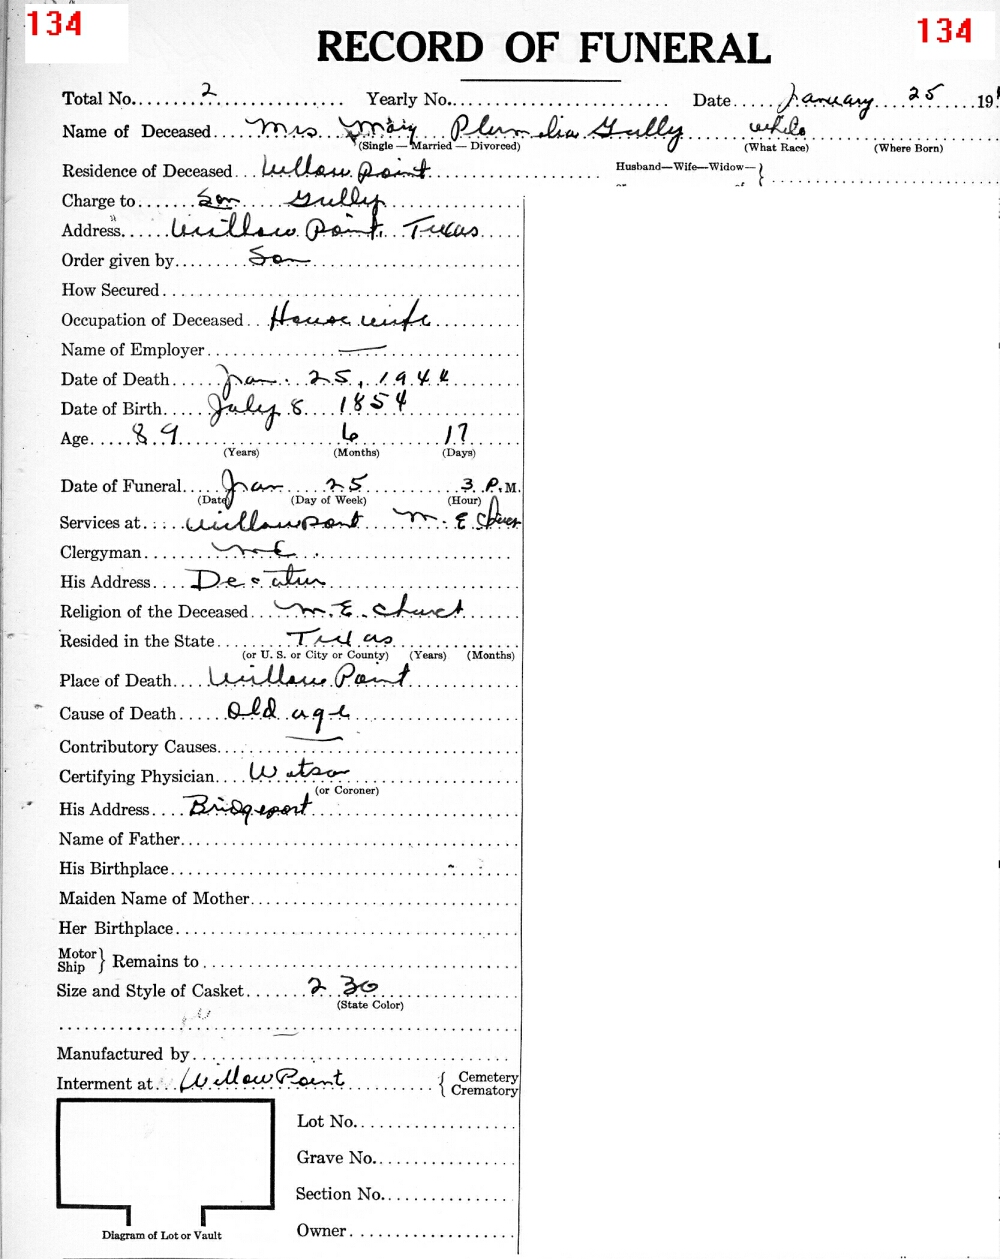 134 134
RECORD OF FUNERAL
Total No. 2 Yearly No. Date January 25 19
Name of Deceased Mrs. Mary Plumelia Gully White
(Single — Married — Divorced) (What Race) (Where Born)
Residence of Deceased Willow Point Husband—Wife—Widow— }
Charge to Son Gully
Address Willow Point, Texas
Order given by Son
How Secured
Occupation of Deceased House wife
Name of Employer —
Date of Death Jan. 25, 1944
Date of Birth July 8 1854
Age 89 6 17
(Years) (Months) (Days)
Date of Funeral Jan 25 3 P.M.
(Date) (Day of Week) (Hour)
Services at Willow Point M. E Church
Clergyman M E
His Address Decatur
Religion of the Deceased M. E. Church
Resided in the State Texas
(or U. S. or City or County) (Years) (Months)
Place of Death Willow Point
Cause of Death Old age
Contributory Causes —
Certifying Physician Watson
(or Coroner)
His Address Bridgeport
Name of Father
His Birthplace
Maiden Name of Mother
Her Birthplace
Motor Ship } Remains to
Size and Style of Casket 2 30
(State Color)
Manufactured by
Interment at Willow Point { Cemetery Crematory
Lot No.
Grave No.
Section No.
Owner
Diagram of Lot or Vault